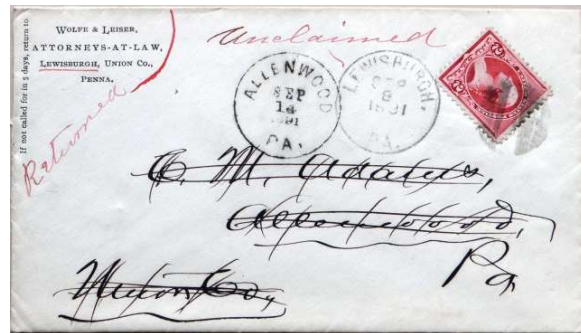 If not called for in 5 days, return to
WOLFE & LEISER,
ATTORNEYS-AT-LAW,
LEWISBURGH, UNION CO.,
PENNA.
Returned
Unclaimed
ALLENWOOD
SEP
14
1891
PA.
LEWISBURGH,
SEP
8
1891
PA.
2 2
C. M. Adams,
Allenwood,
Pa
Union Co.,